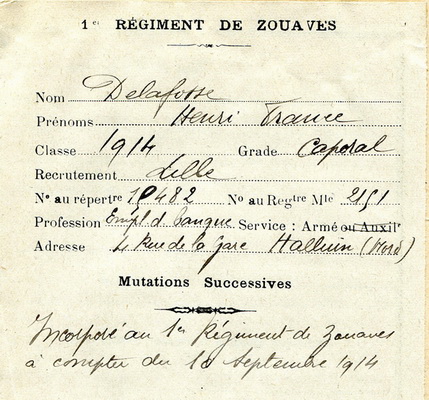 1er RÉGIMENT DE ZOUAVES
Nom Delafosse
Prénoms Henri France
Classe 1914 Grade Caporal
Recrutement Lille
No au répertre 10482 No au Regtre Mle 2151
Profession Empl d Banque Service : Armé ou Auxilre
Adresse 4 Rue de la Gare Halluin (Nord)
Mutations Successives
Incorporé au 1er Régiment de Zouaves
à compter du 10 Septembre 1914